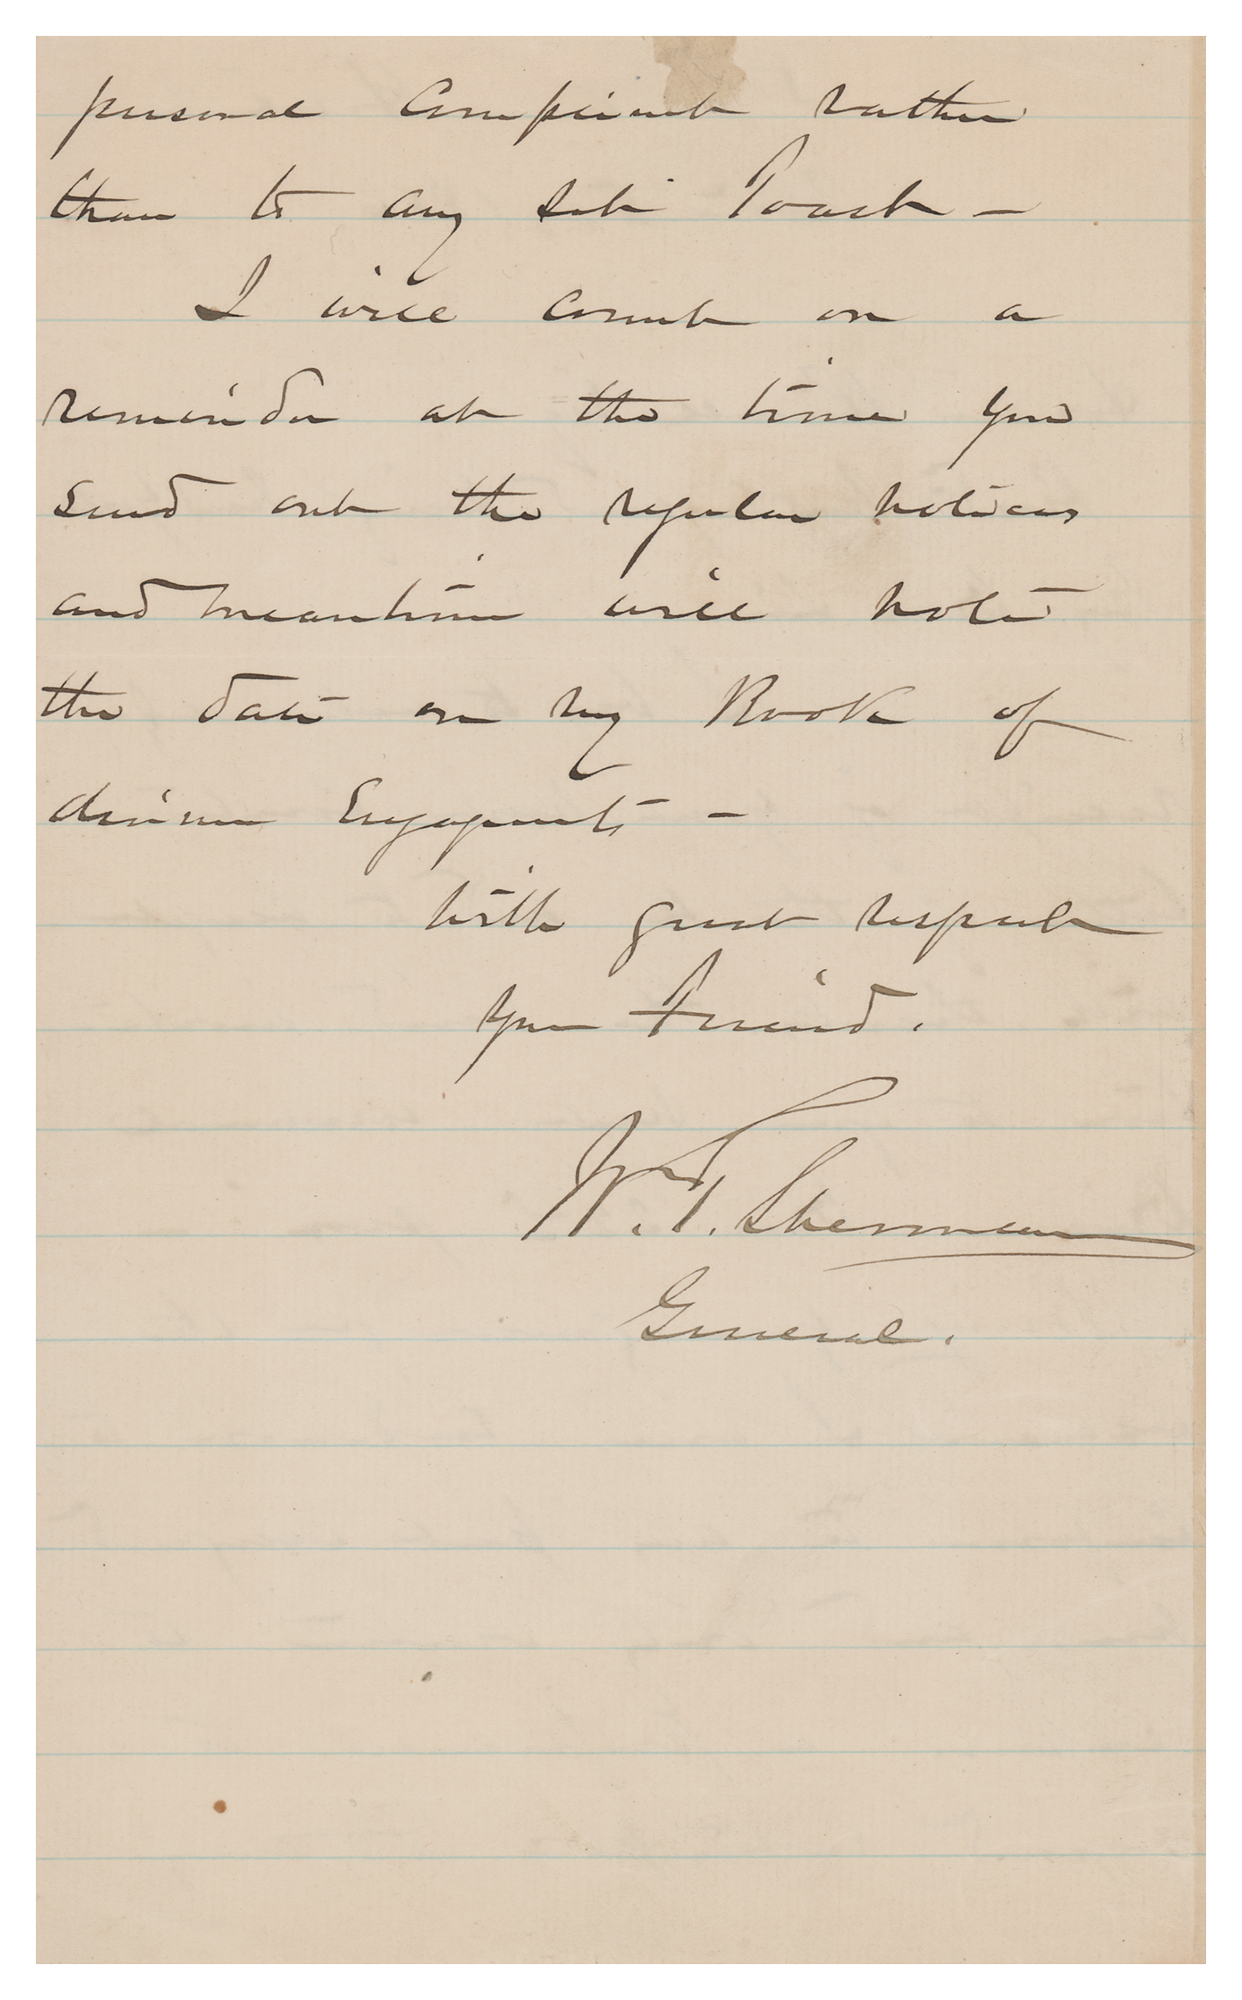 personal compliment rather
than to any set Toast —
I will count on a
reminder at the time you
send out the regular notices
and meantime will note
the date on my Book of
dinner Engagements —
With great respect
Your friend.
W. T. Sherman
General.